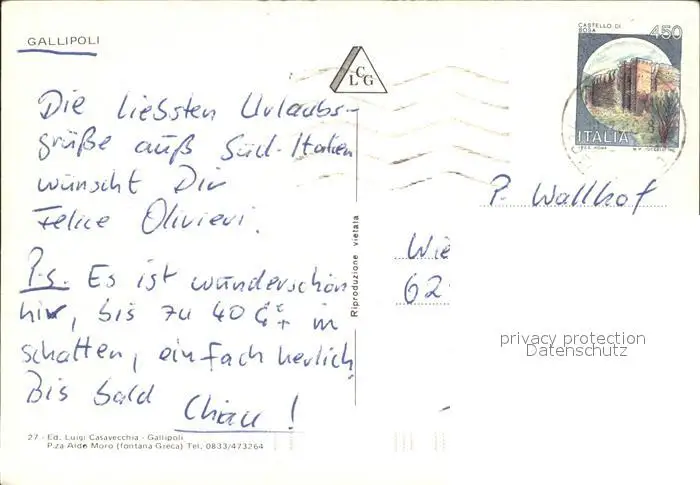 GALLIPOLI
CASTELLO DI
ROSA
450
ITALIA
L C G
Die liebsten Urlaubs-
grüße auß Süd-Italien
wünscht Dir
Felice Olivieri.
P.s. Es ist wunderschön
hir, bis zu 40 G°+ in
schatten, einfach herlich
Bis bald
Chiau!
Riproduzione vietata
P. Wallhof
Wie
62
privacy protection
Datenschutz
27 - Ed. Luigi Casavecchia - Gallipoli
P.za Aldo Moro (fontana Greca) Tel. 0833/473264